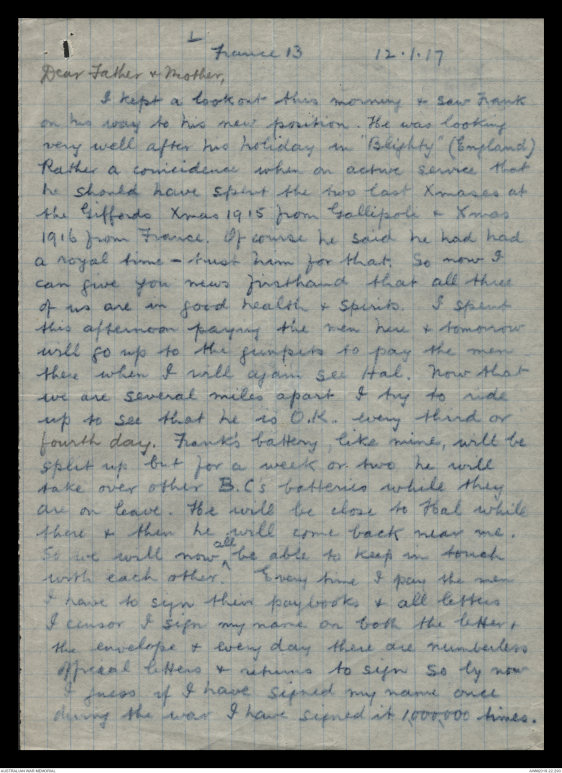 1
France 13 12.1.17
Dear Father & Mother,
I kept a lookout this morning & saw Frank
on his way to his new position. He was looking
very well after his holiday in "Blighty" (England)
Rather a coincidence when on active service that
he should have spent the two last Xmases at
the Giffords Xmas 1915 from Gallipole & Xmas
1916 from France. Of course he said he had had
a royal time – trust him for that. So now I
can give you news firsthand that all three
of us are in good health & spirits. I spent
this afternoon paying the men here & tomorrow
will go up to the gunpits to pay the men
there when I will again see Hal. Now that
we are several miles apart I try to ride
up to see that he is O.K. every third or
fourth day. Frank's battery, like mine, will be
split up but for a week or two he will
take over other B.C's batteries while they
are on leave. He will be close to Hal while
there & then he will come back near me.
So we will now all be able to keep in touch
with each other. Every time I pay the men
I have to sign their paybooks & all letters
I censor I sign my name on both the letter &
the envelope & every day there are numberless
official letters & returns to sign so by now
I guess if I have signed my name once
during the war I have signed it 1,000,000 times.
AUSTRALIAN WAR MEMORIAL